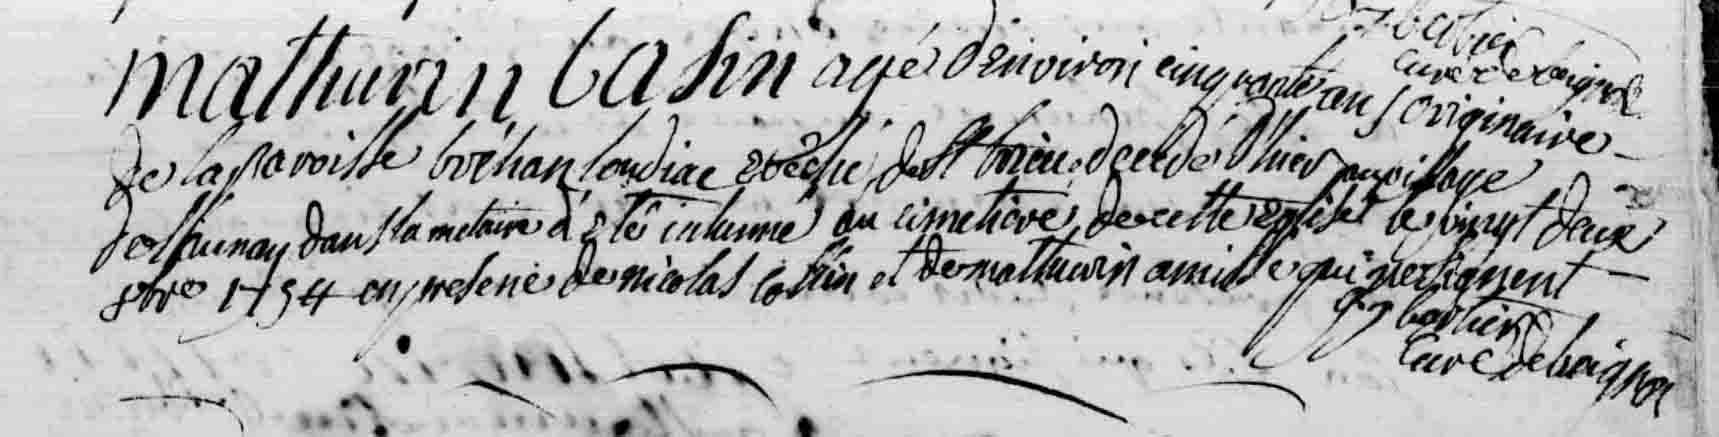 curé de beignon
mathurin Cashin agé d'environ cinquante ans originaire
de la paroisse bréhan loudiac évêché de St brieu decedé hier au village
de launay dans la metairie a été inhumé au cimetiere de cette eglise le vingt deux
8bre 1754 en presence de nicolas et de mathurin qui ne signent
curé de beignon